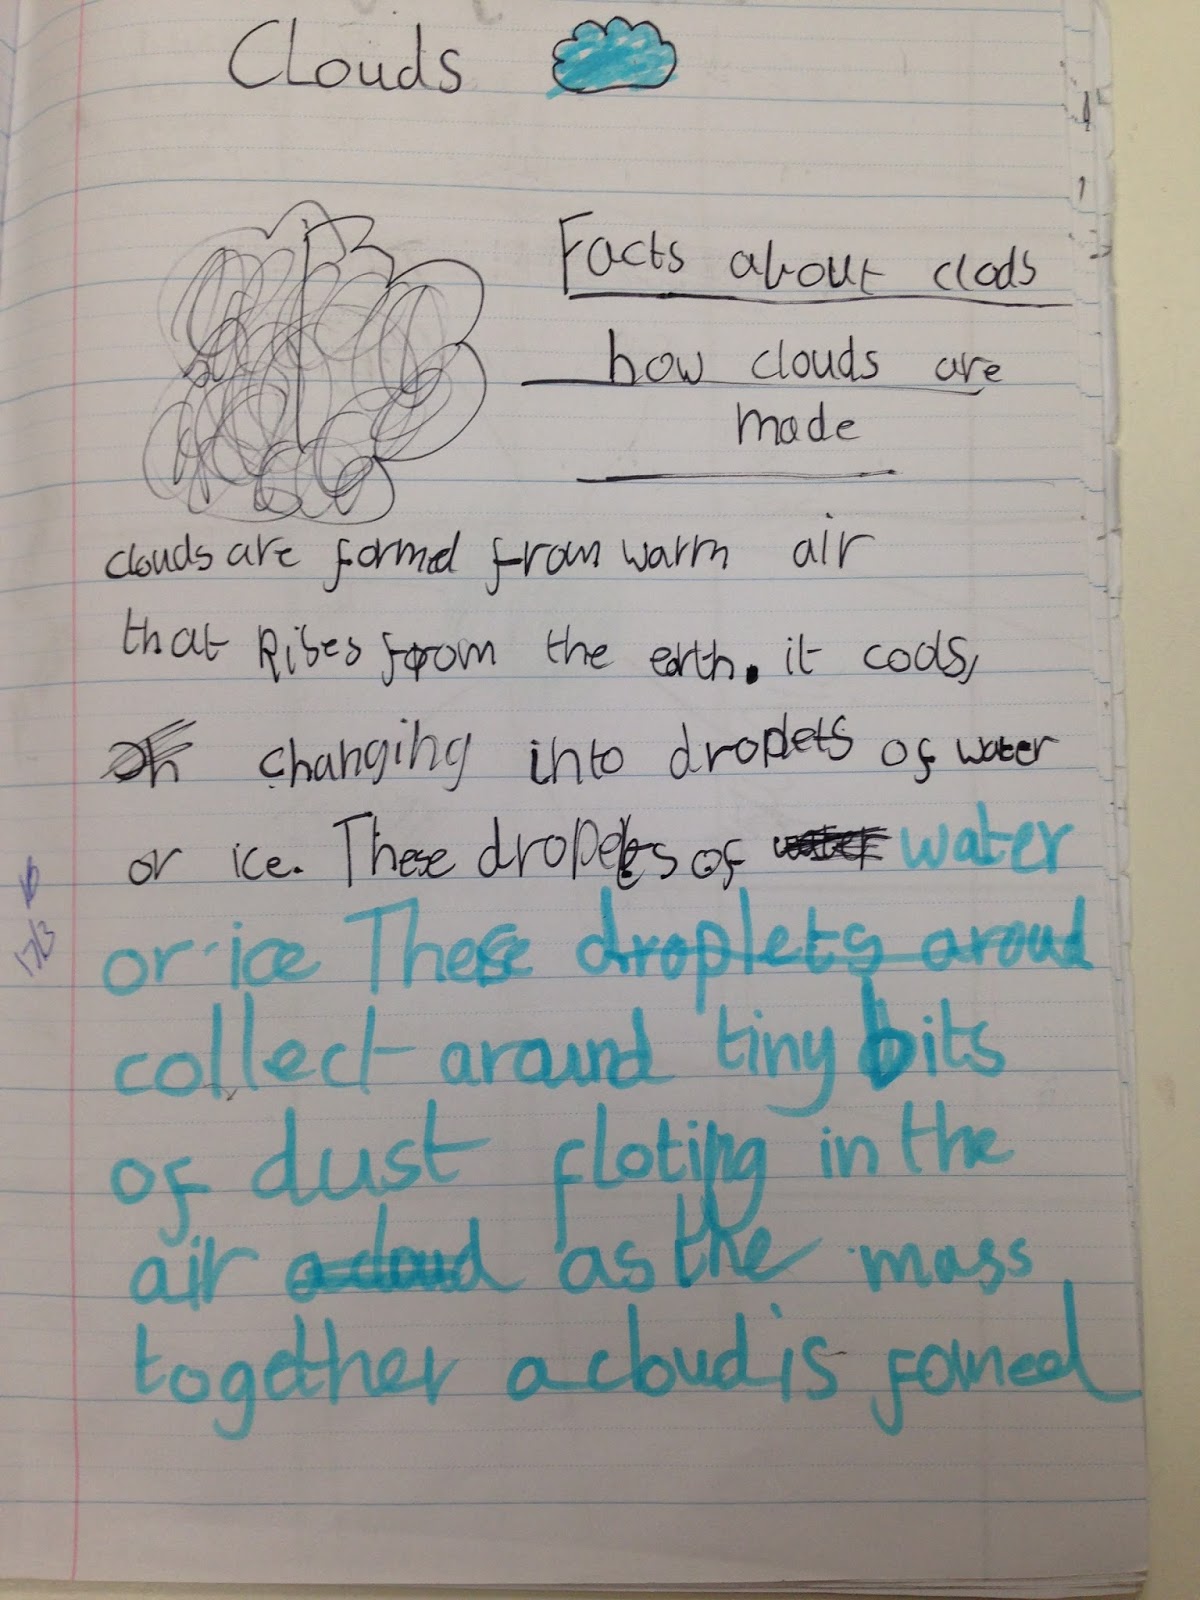 Clouds
Facts about clods
how clouds are
made
clouds are formed from warm air
that Rises from the earth. it cools,
changing into droplets of water
or ice. These droplets of water water
or ice These droplets aroud
collect around tiny bits
of dust floting in the
air a cloud as the mass
together a cloud is fomed